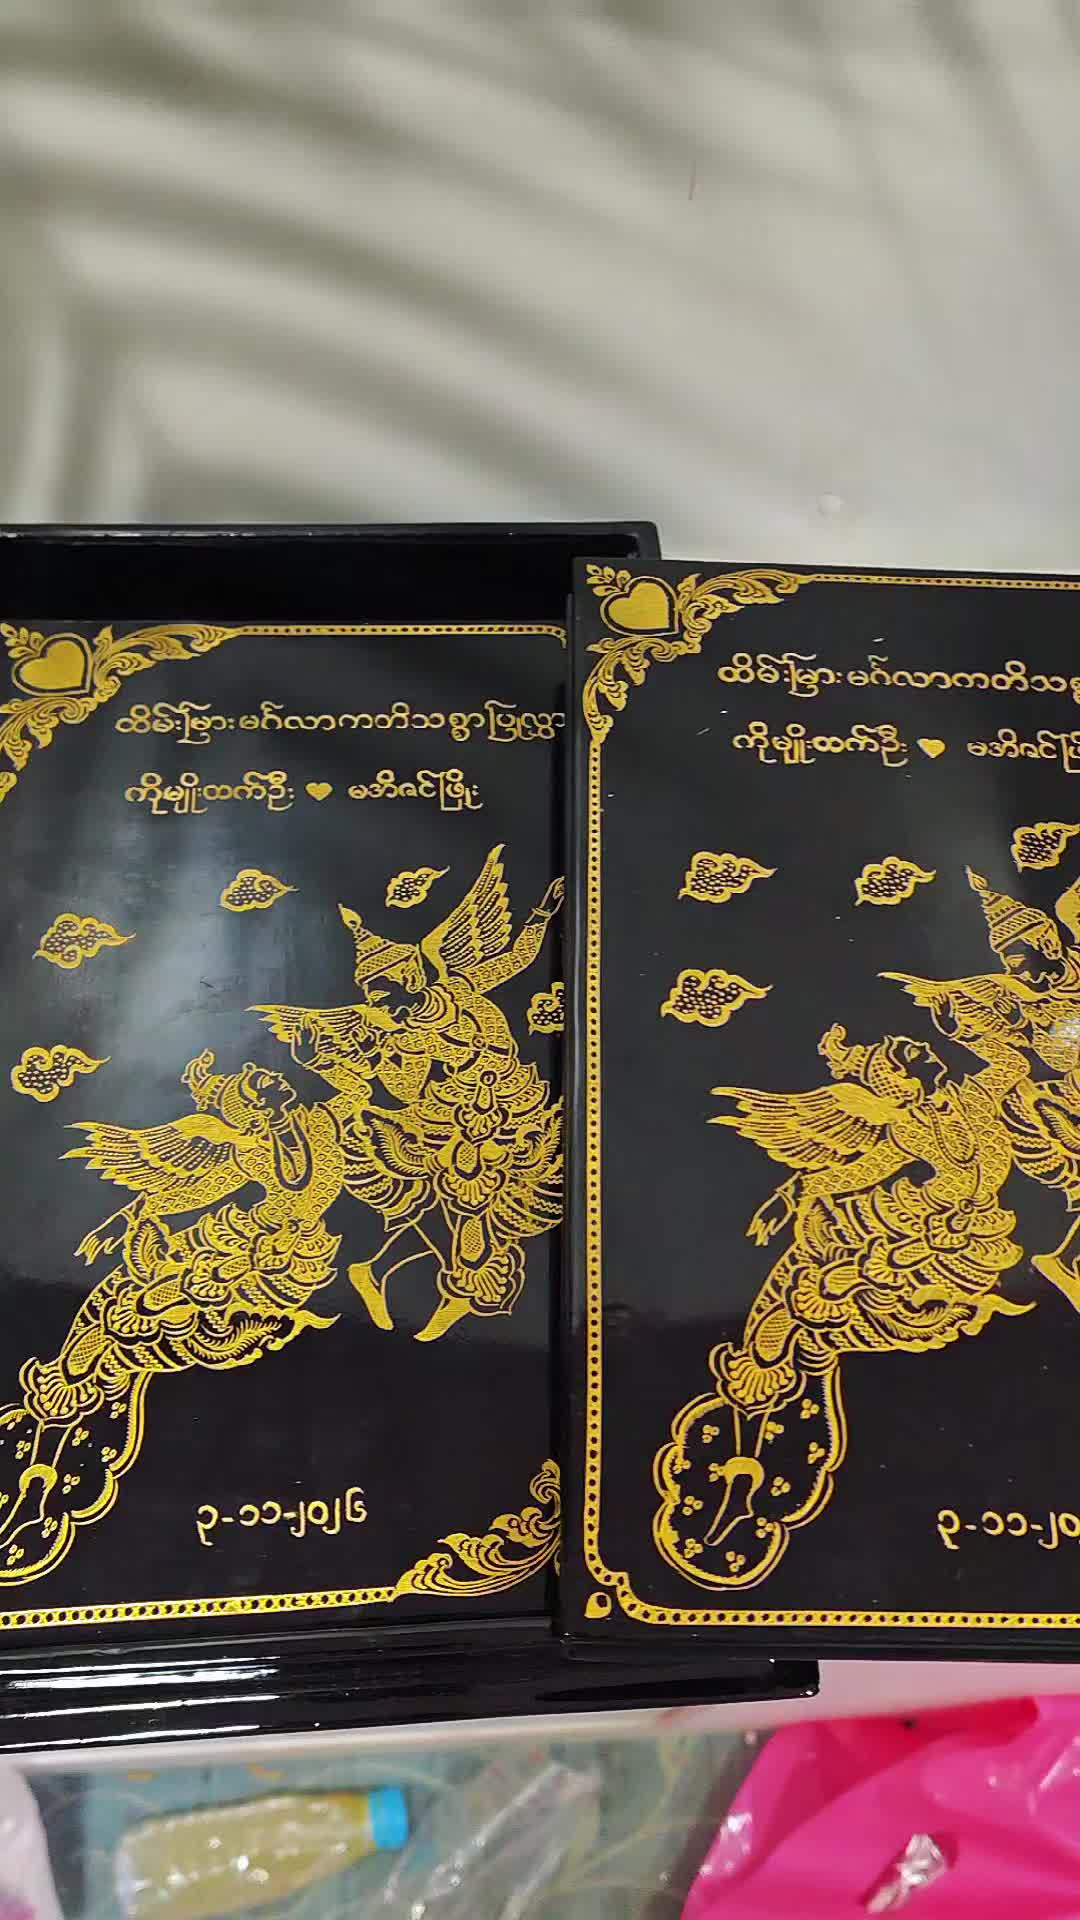 ထိမ်းမြားမင်္ဂလာကတိသစ္စာပြုလွှာ
ကိုမျိုးထက်ဦး ♥ မအိဇင်ဖြိုး
၃-၁၁-၂၀၂၆
ထိမ်းမြားမင်္ဂလာကတိသစ္စာ
ကိုမျိုးထက်ဦး ♥ မအိဇင်ဖြိ
၃-၁၁-၂၀